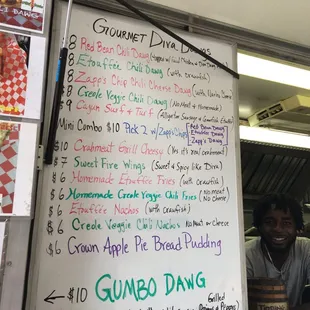 Gourmet Diva Dawgs
$8 Red Bean Chili Dawg
$8 Etouffée Chili Dawg (with crawfish)
$8 Zapp's Chip Chili Cheese Dawg
$8 Creole Veggie Chili Dawg (No Meat & Homemade)
$9 Cajun Surf & Turf
Mini Combo $10 Pick 2 w/Zapp's Chips
Red Bean Dawg
Etouffee Dawg
Zapp's Dawg
$10 Crabmeat Grill Cheesy (Yes it's real crabmeat)
$7 Sweet Fire Wings (Sweet & Spicy like Diva)
$6 Homemade Etouffée Fries (with crawfish)
$6 Homemade Creole Veggie Chili Fries (No meat
No cheese
$6 Etouffée Nachos (with crawfish)
$6 Creole Veggie Chili Nachos No Meat or Cheese
$6 Crown Apple Pie Bread Pudding
← $10 GUMBO DAWG
Grilled
Onions & Peppers